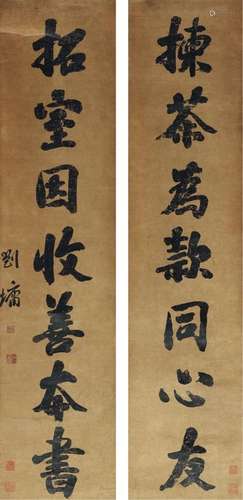 揀茶為款同心友
拓室因收善本書
劉墉